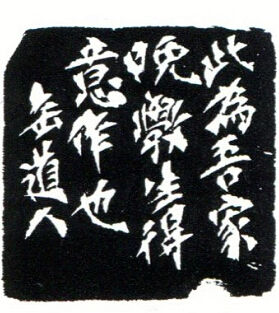 此為吾家
晚學生得
意作也
缶道人